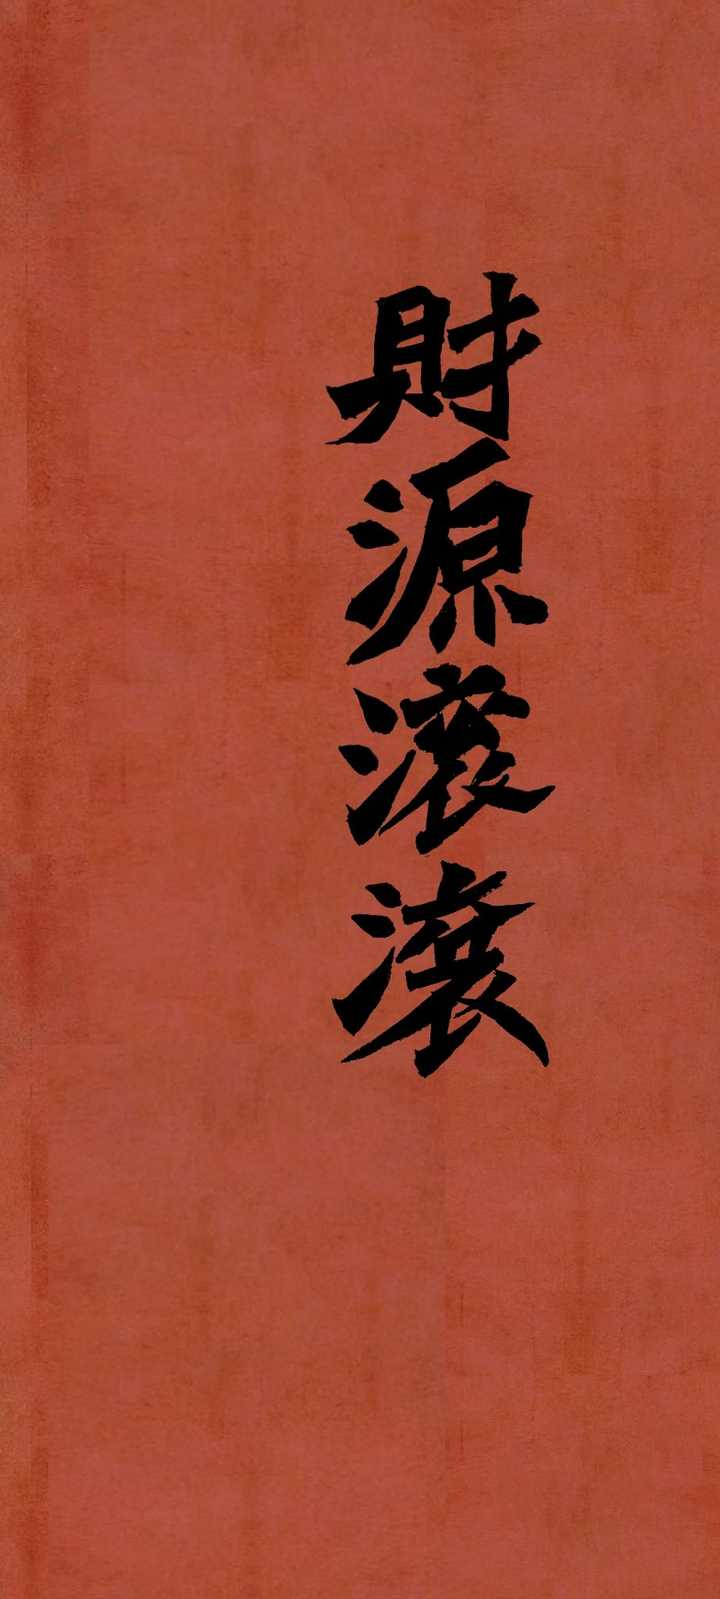 財源滾滾